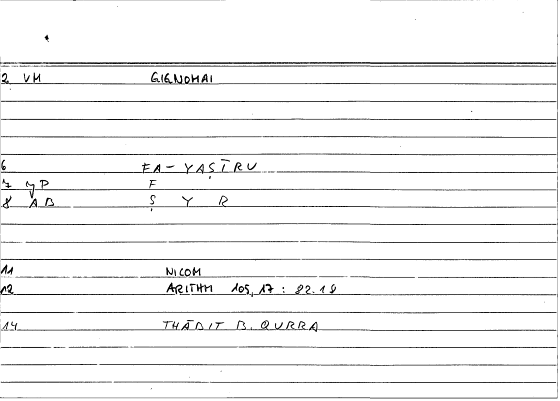 2 VM GIGNOMAI
6 FA-YAṢĪRU
7 yP F
8 AB Ṣ Y R
11 NICOM
12 ARITHM 105,17 : 22.18
14 THĀBIT B. QURRA